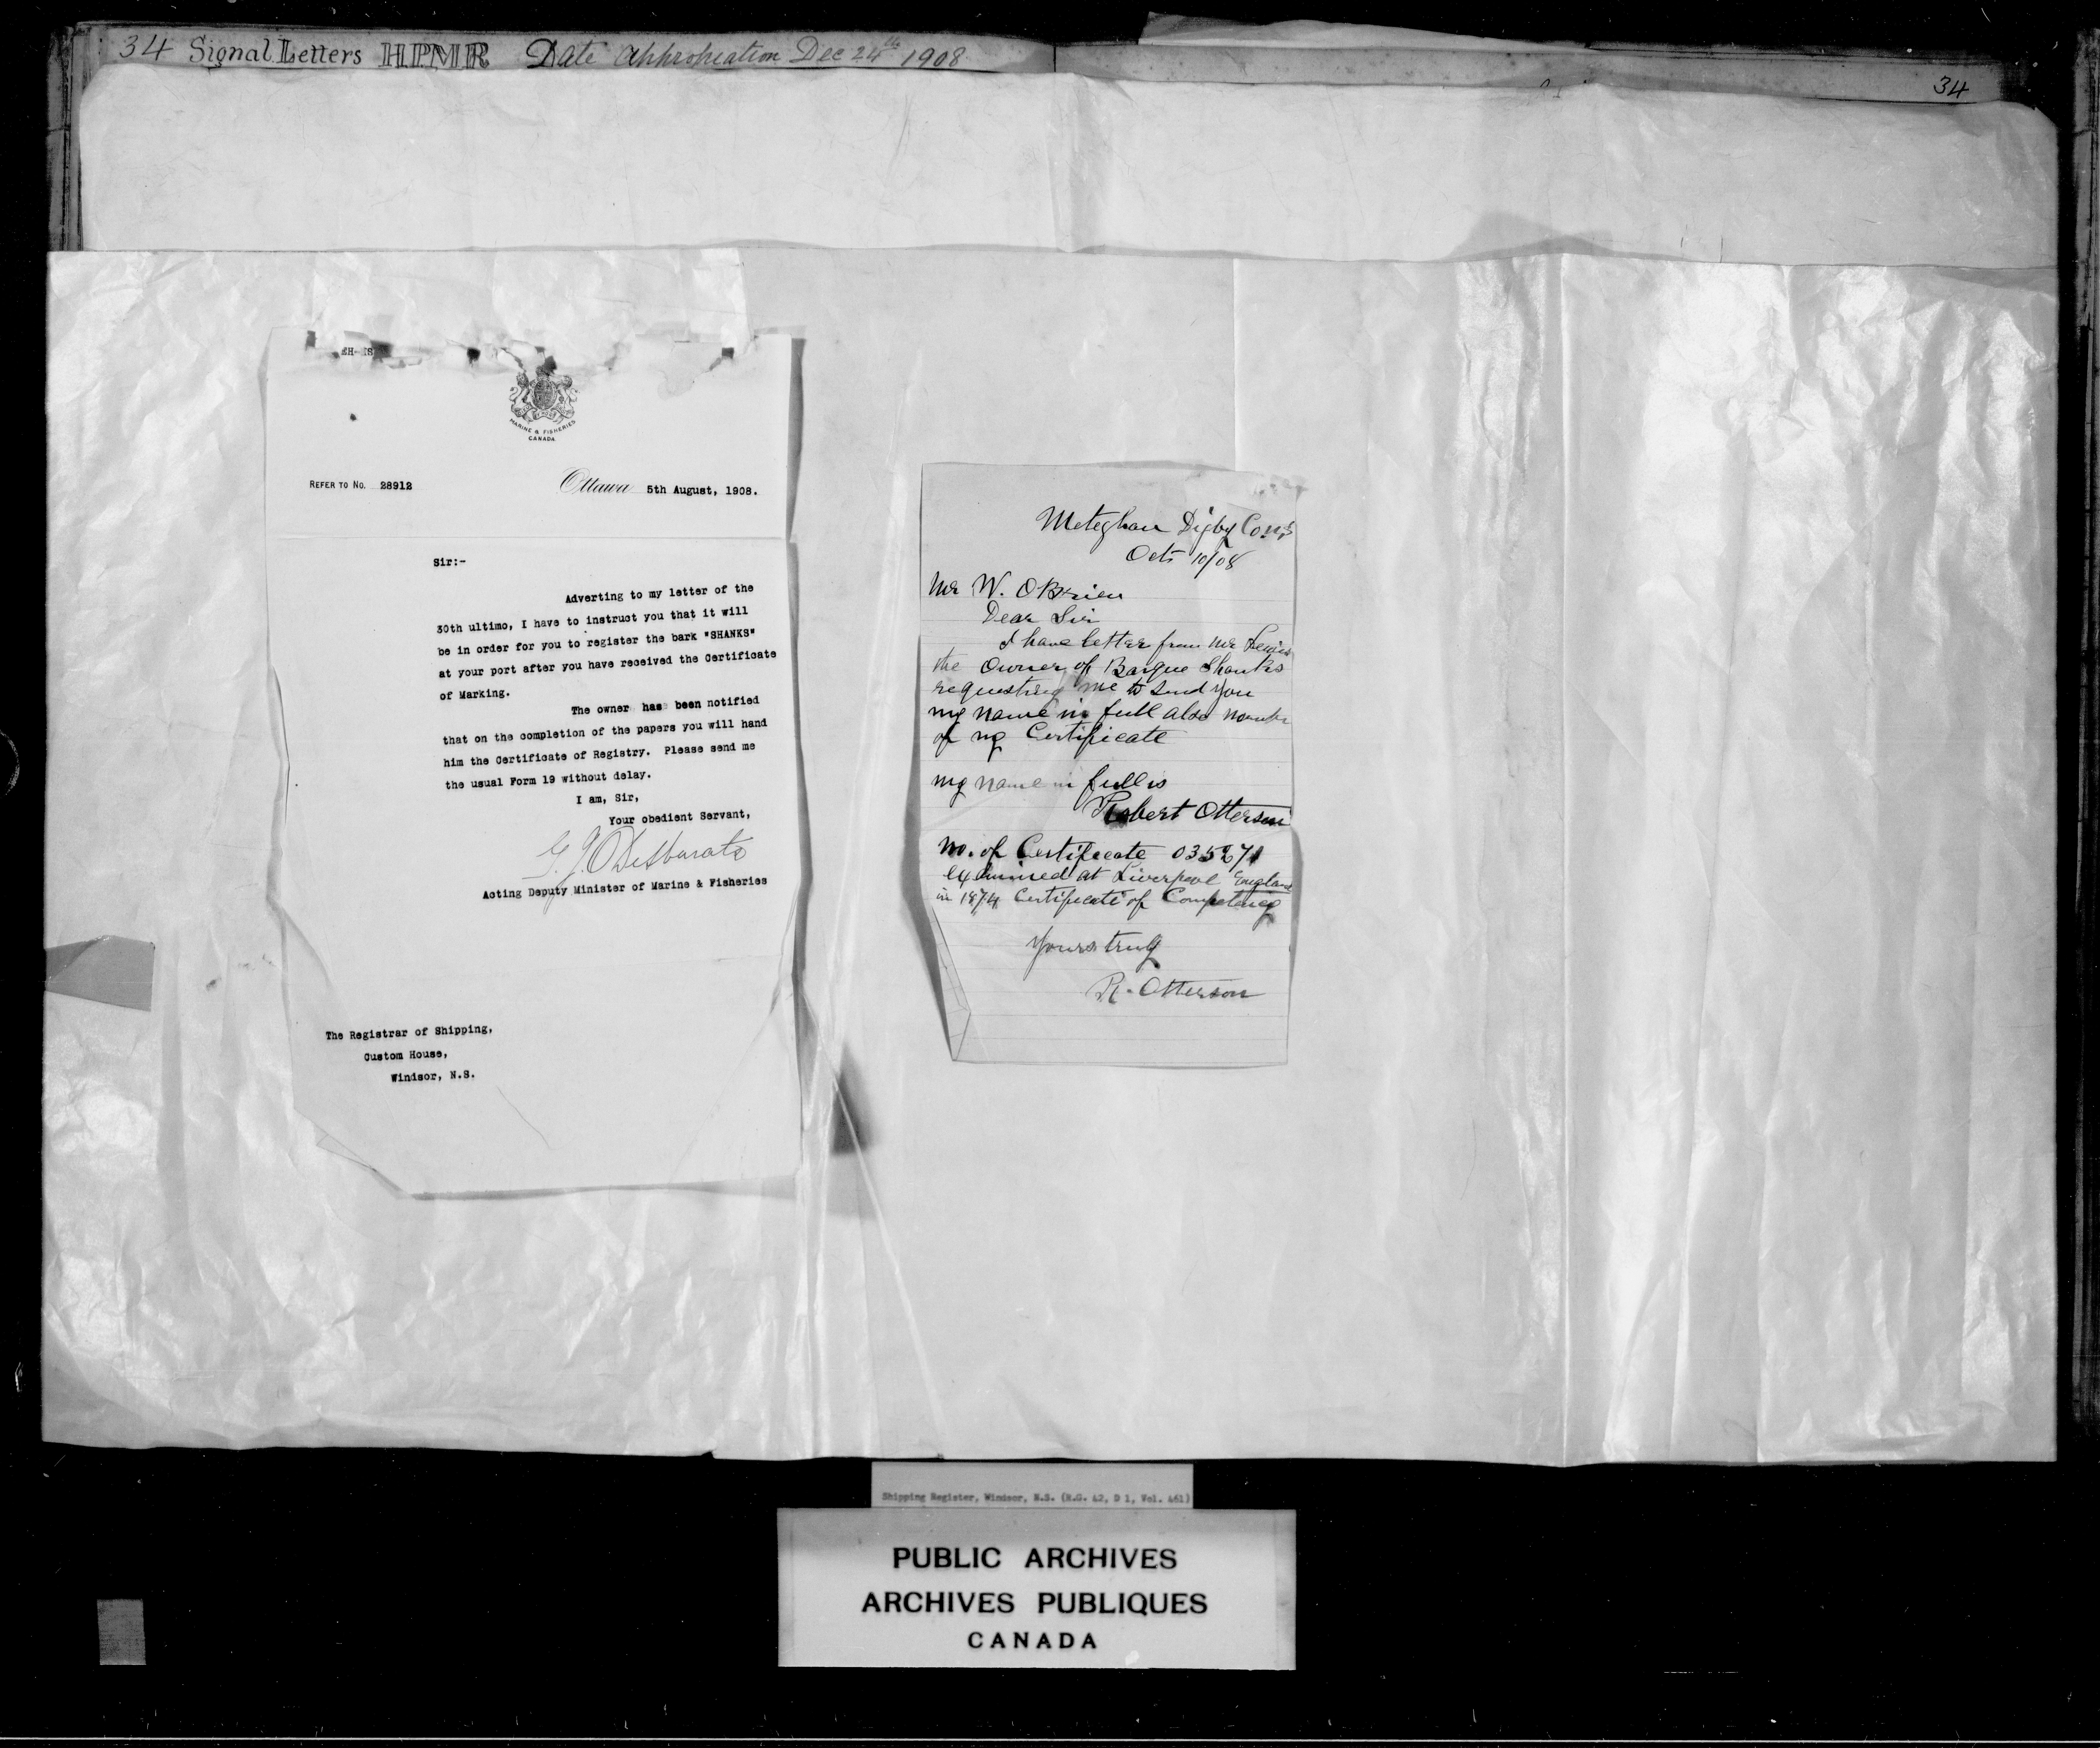 34 Signal Letters HPMR Date appropriation Dec 24th 1908
34
EH-ES
MARINE & FISHERIES
CANADA
REFER TO No. 28912
Ottawa 5th August, 1908.
Sir:-
Adverting to my letter of the
30th ultimo, I have to instruct you that it will
be in order for you to register the bark "SHANKS"
at your port after you have received the Certificate
of Marking.
The owner has been notified
that on the completion of the papers you will hand
him the Certificate of Registry. Please send me
the usual Form 19 without delay.
I am, Sir,
Your obedient Servant,
G. J. Desbarats
Acting Deputy Minister of Marine & Fisheries
The Registrar of Shipping,
Custom House,
Windsor, N.S.
Meteghan Digby Co. NS
Oct 10/08
Mr W. OBrien
Dear Sir
I have letter from Mr
the Owner of Barque Shanks
requesting me to send you
my name in full also number
of my Certificate
my name in full is
Robert Otterson
No. of Certificate
examined at Liverpool England
in 1874 Certificate of Competency
Yours truly
R. Otterson
Shipping Register, Windsor, N.S. (R.G. 42, D 1, Vol. 461)
PUBLIC ARCHIVES
ARCHIVES PUBLIQUES
CANADA